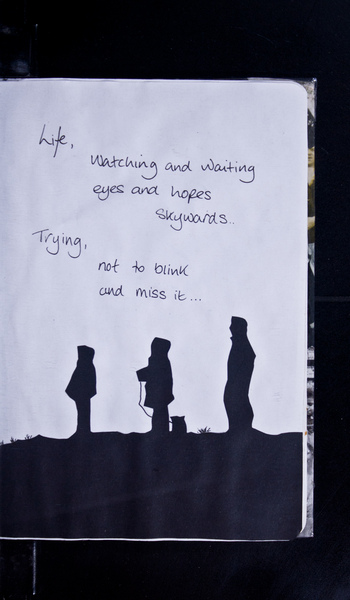 Life,
Watching and waiting
eyes and hopes
skywards..
Trying,
not to blink
and miss it...